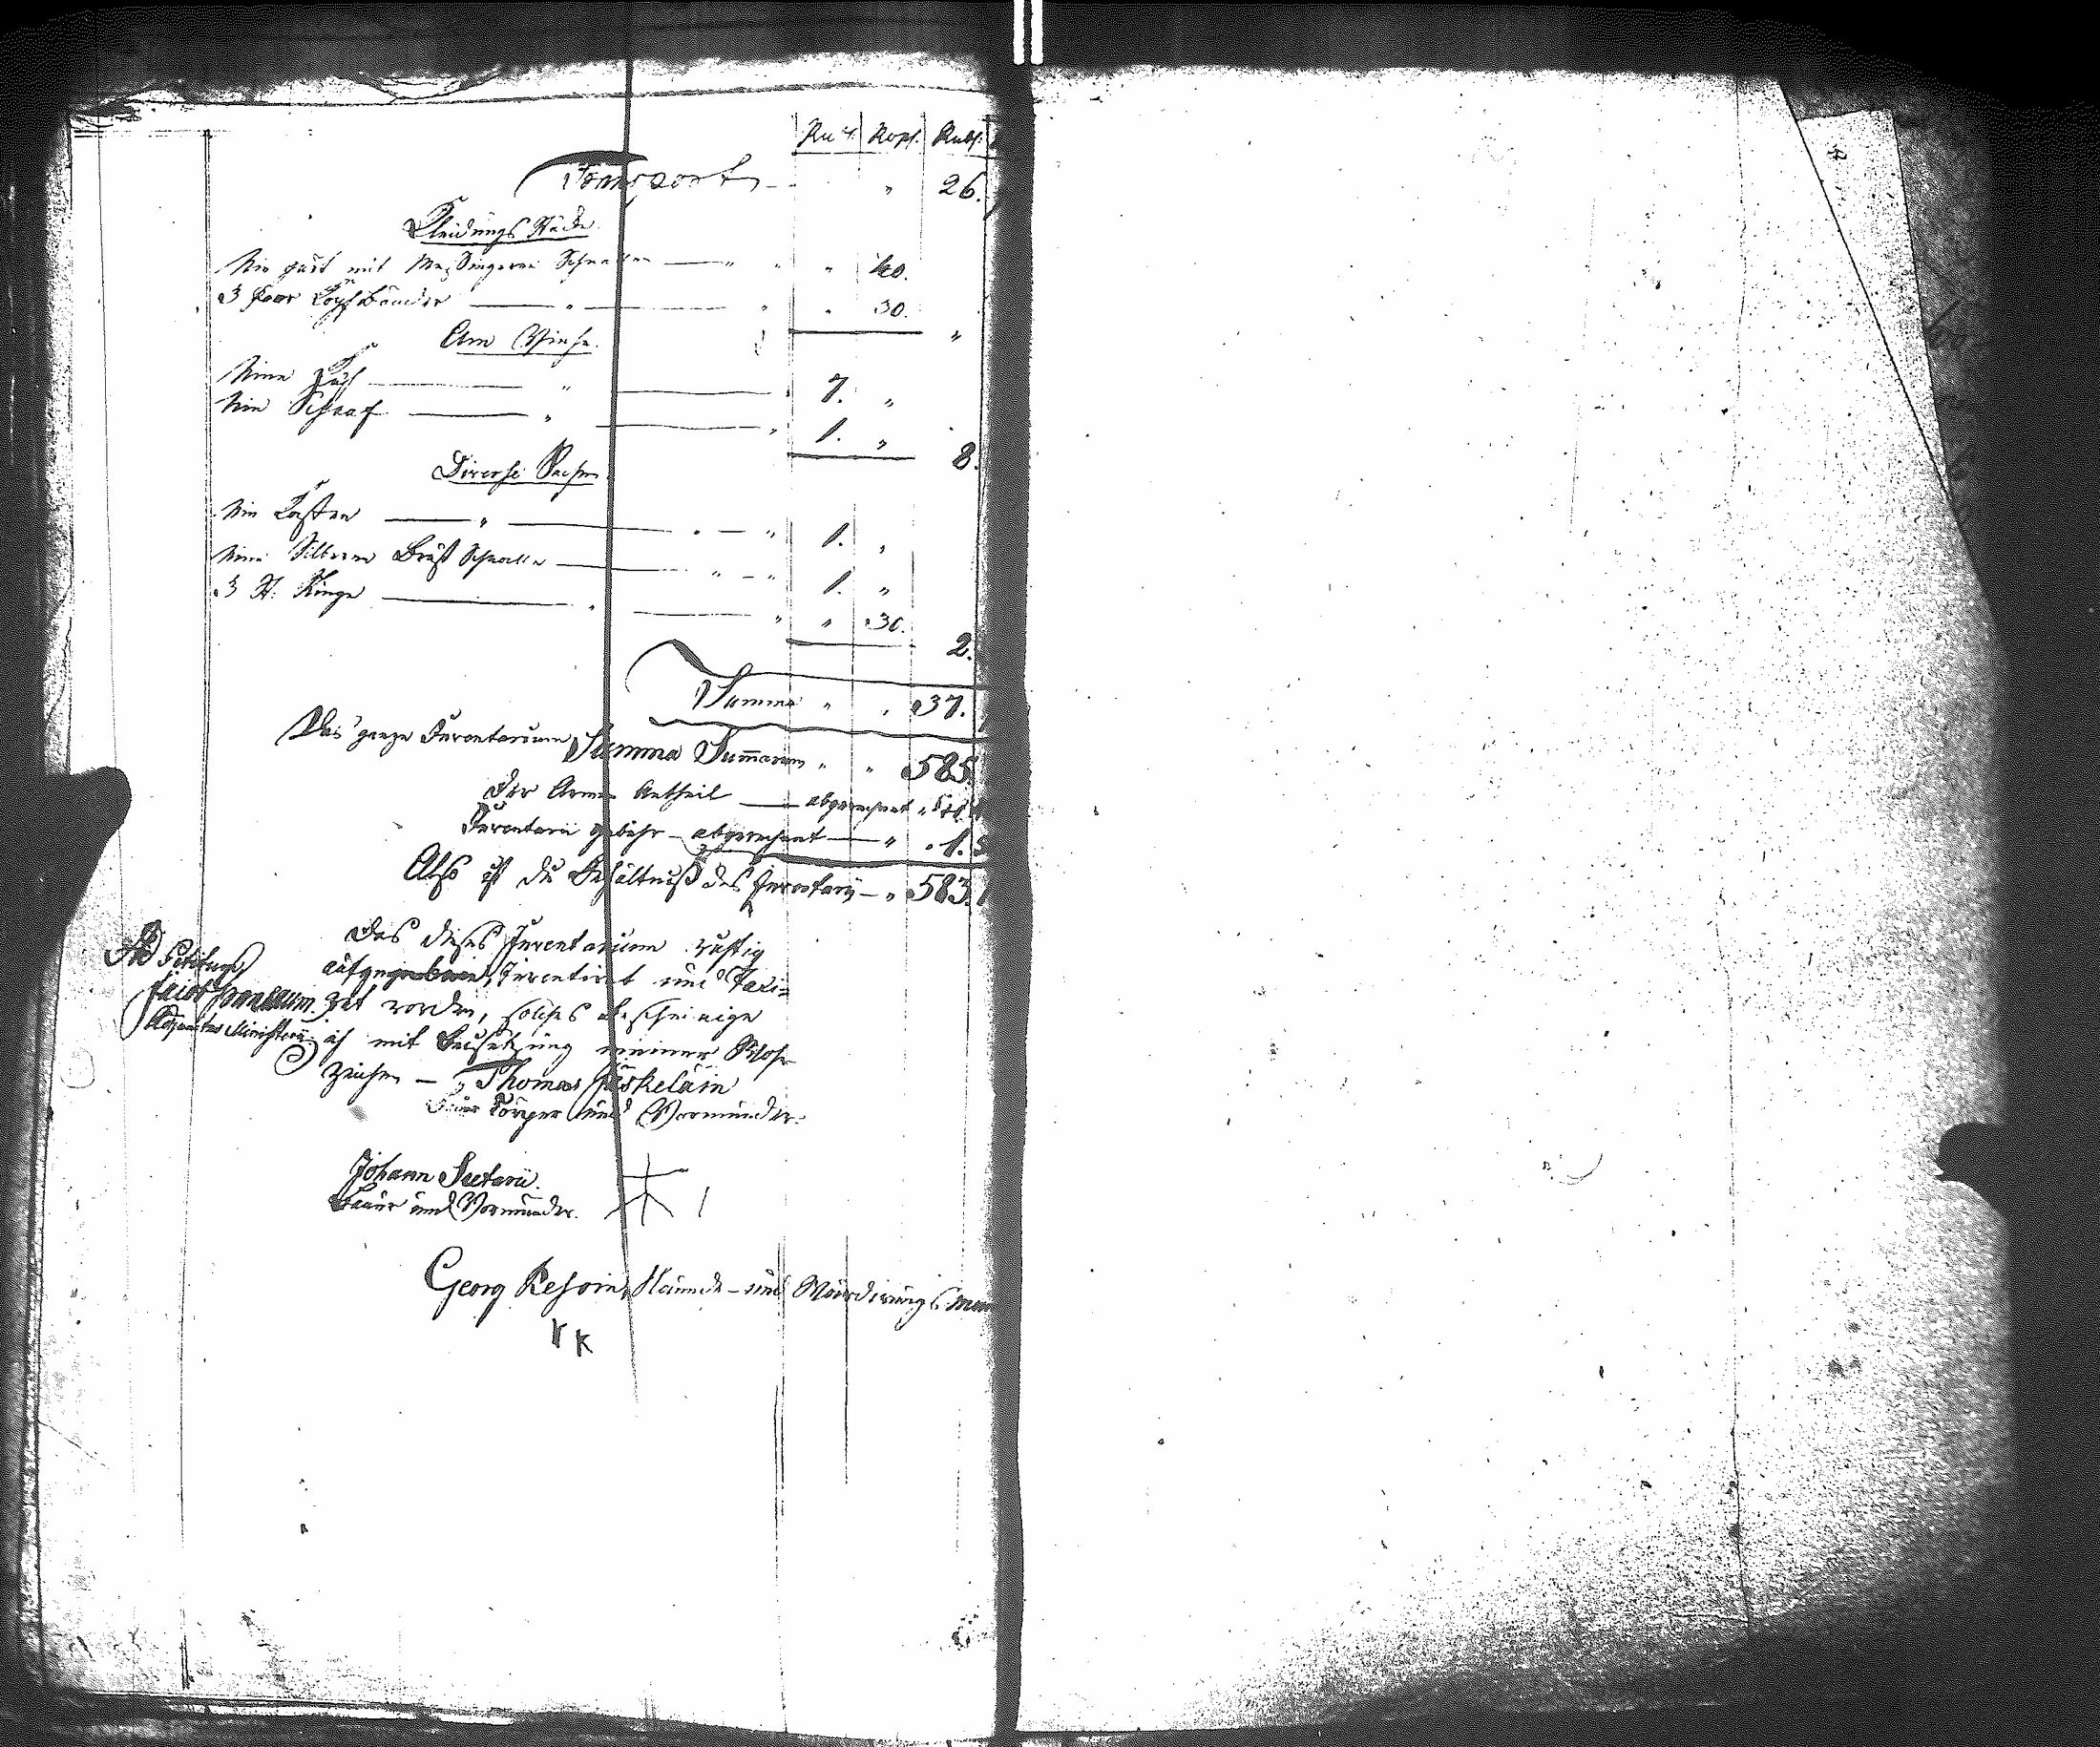 Rub. Kop. Rub.
Transport — " 26.
Kleidungs Stücke
Ein Hut mit Meßingernn Schnallen — " " " 40.
3 Paar Kopf Bänder — " — " " 30.
"
Am Viehe.
Eine Kuh — " — " 7. "
Ein Schaaf — " — " 1. "
8.
Diverse Sachen
Ein Kasten — " — " — " 1. "
Eine Silberne Brust Schnalle — " — " 1. "
3 St. Ringe — " — " " 30.
2.
Summa " " 37.
Das ganze Inventarium Summa Summarum " " 585.
Der Armen Antheil — abgerechnet "
Inventarii gebühr — abgerechnet — " " 1.
Also ist die Behältniß des Inventarii — " 583.
Das dieses Inventarium richtig
aufgegeben, Inventirt und Taxi=
zet worden, solches bescheinige
ich mit Beisetzung meiner
Zeichen — Thomas Häskeläin
Bauer und Vormünder.
Ad
Ministerii
Johann Seetarii.
Bauer und Vormünder.
Georg Rehoin, und Würdirungs man
K K